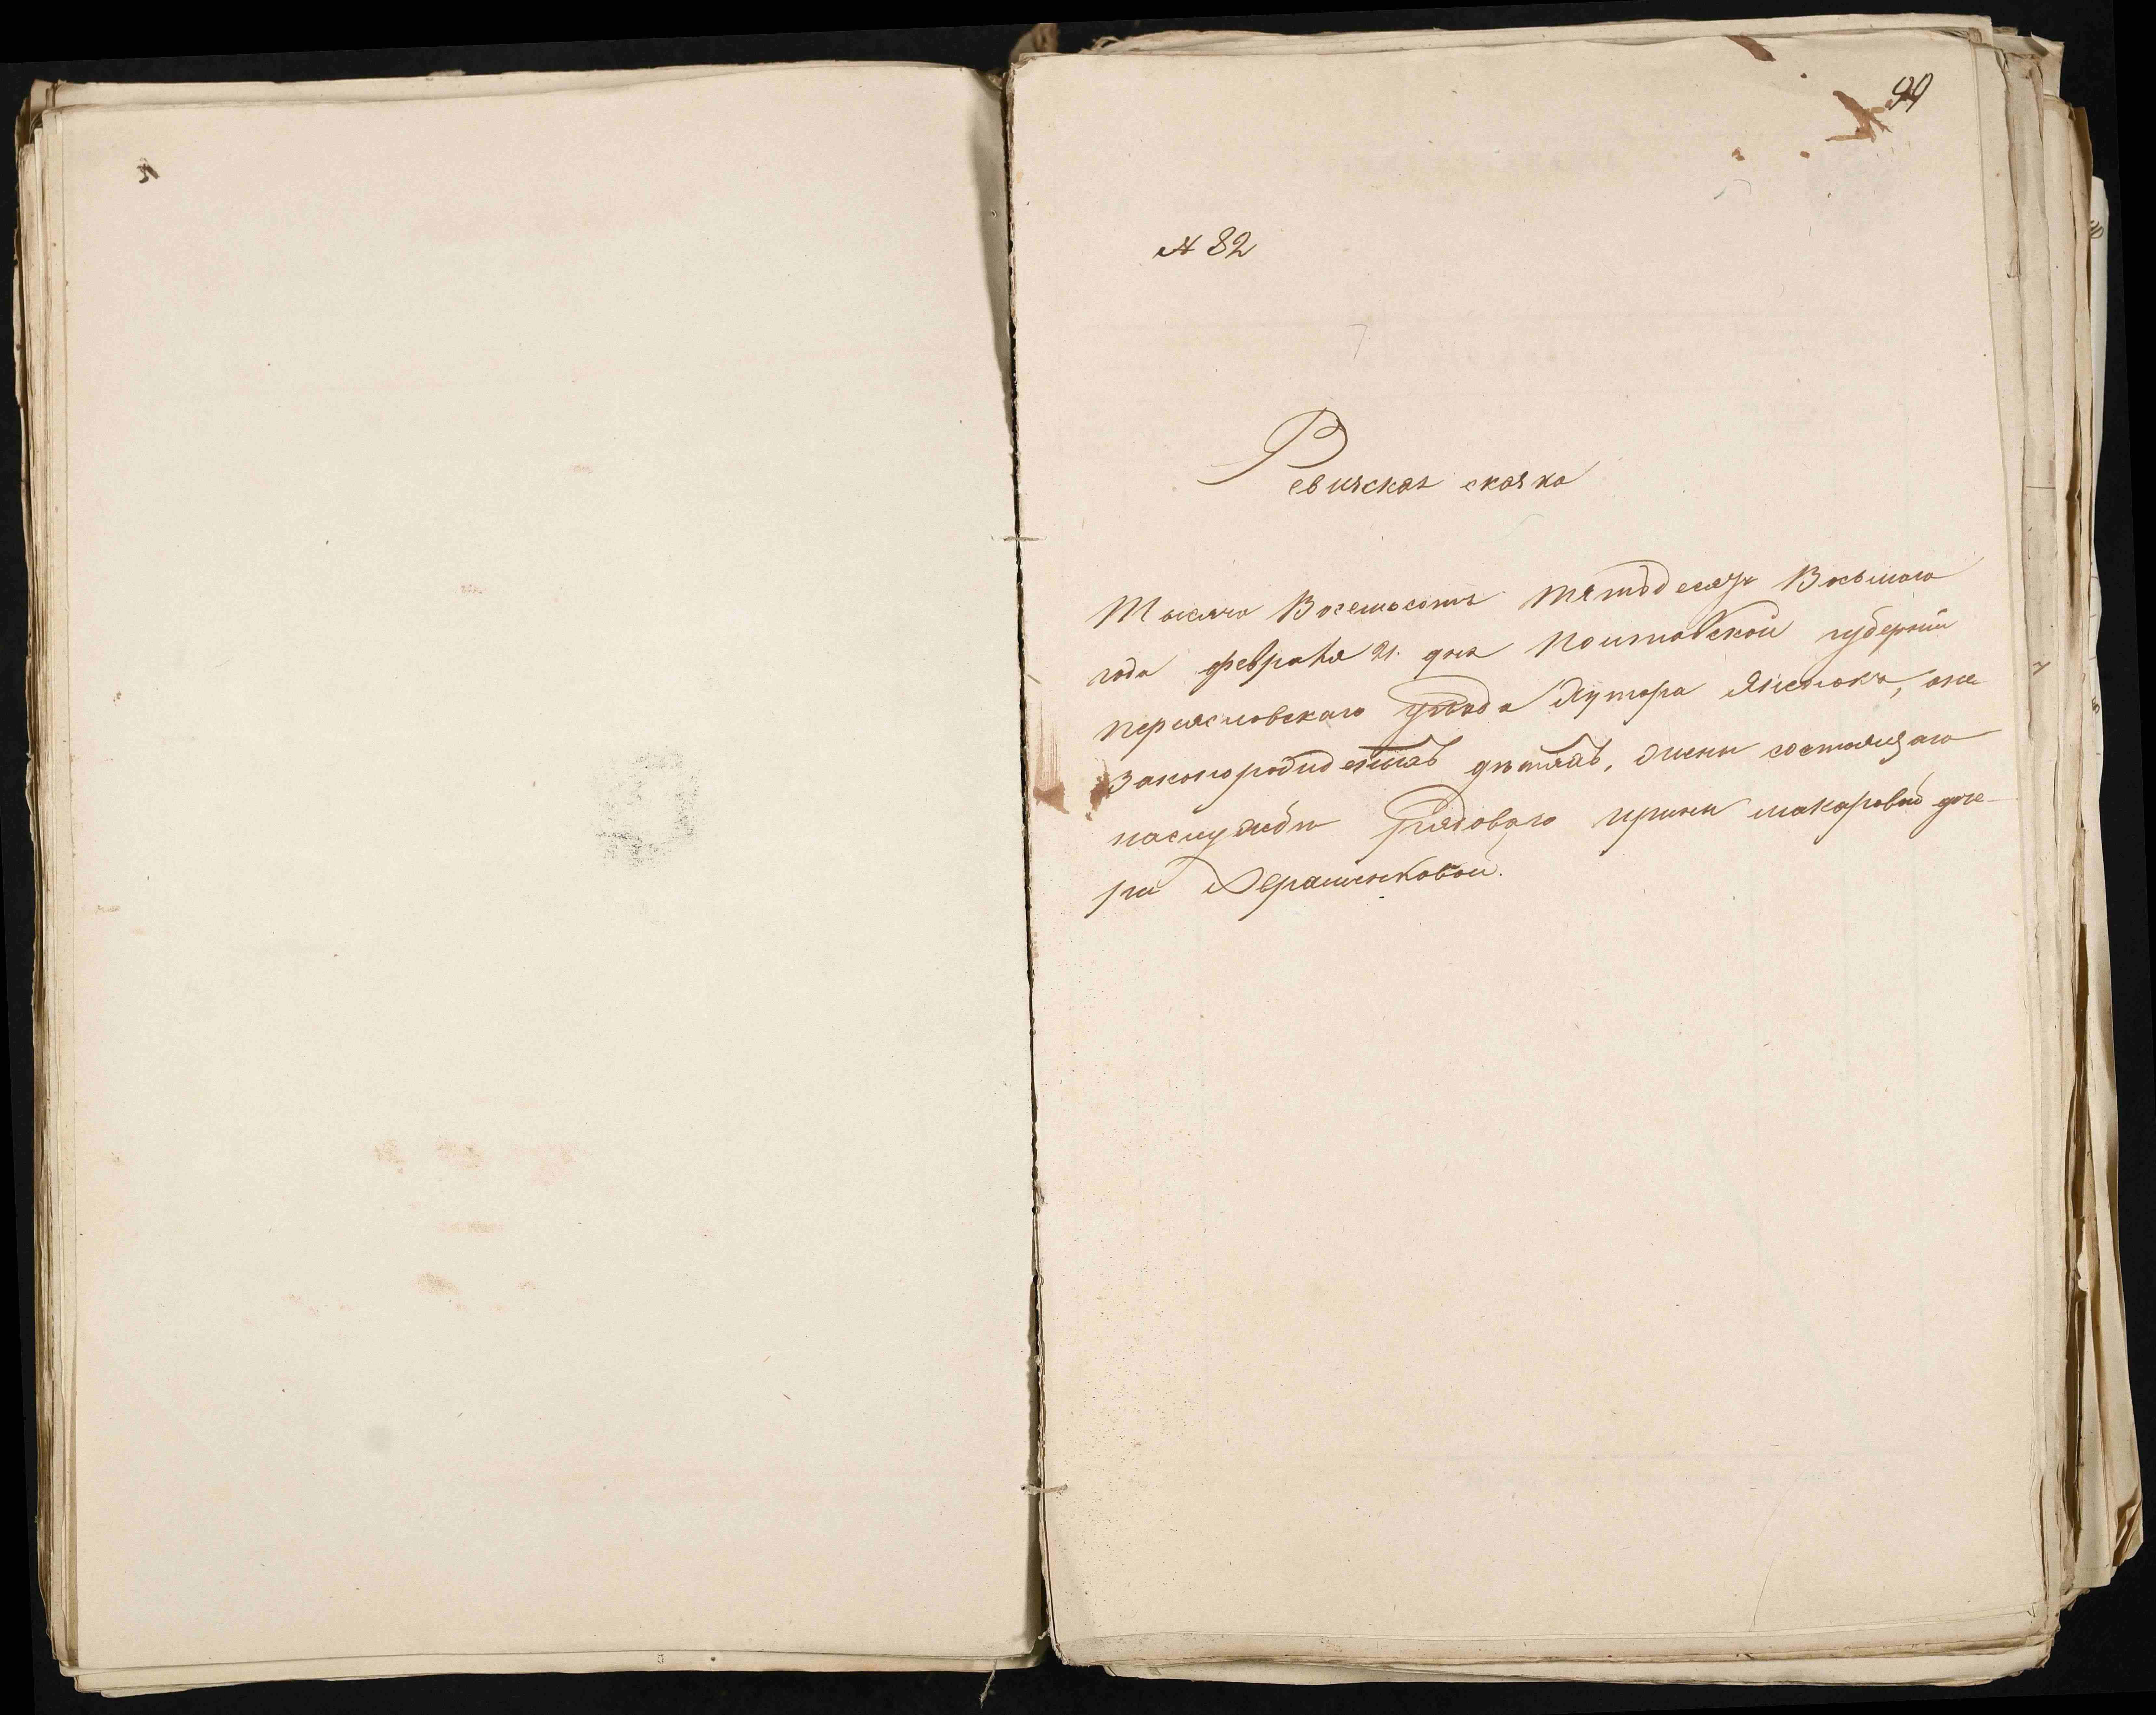 99
№ 82
Ревизская сказка
Тысяча Восемьсотъ пятьдесятъ Восьмаго
года февраля 21. дня Полтавской губернии
переясловскаго уѣзда Хутора, оне
законорожденныхъ дѣтяхъ, жены состоящаго
на службѣ рядоваго ирины макаровой доче-
ри